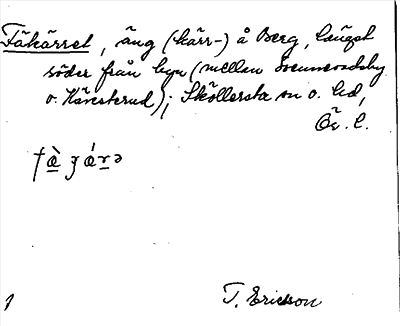 Fäkärret, äng (kärr-) å Berg, längst
söder från byn (mellan Svennevadsby
o. Häresterud); Sköllersta sn o. hd,
Ör. l.
T. Ericsson